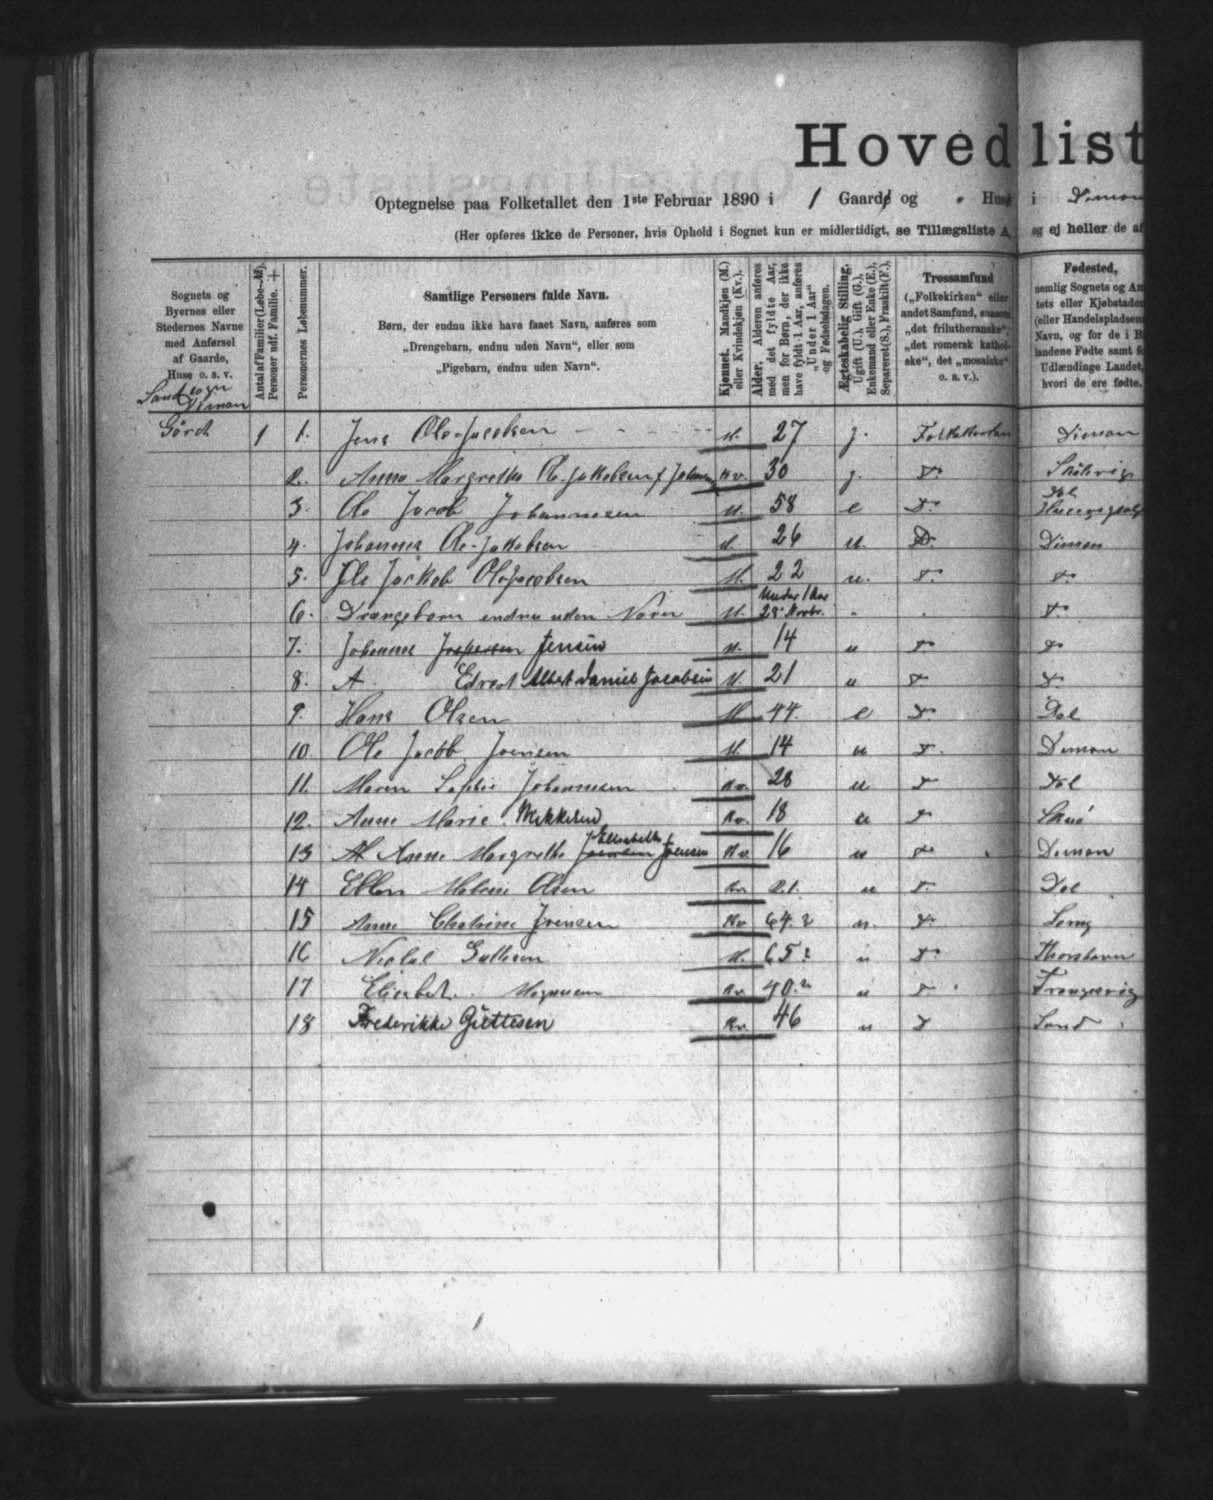 Hovedlist
Optegnelse paa Folketallet den 1ste Februar 1890 i 1 Gaard og Hus i Dimon
(Her opføres ikke de Personer, hvis Ophold i Sognet kun er midlertidigt, se Tillægsliste A, og ej heller de af
Sognets og Byernes eller Stedernes Navne med Anførsel af Gaarde, Huse o. s. v.
Antal af Familier (Løbe-№). Personer udf. Familie. +
Personernes Løbenummer.
Samtlige Personers fulde Navn.
Børn, der endnu ikke have faaet Navn, anføres som
„Drengebarn, endnu uden Navn“, eller som
„Pigebarn, endnu uden Navn“.
Kjønnet. Mandkjøn (M.) eller Kvindekjøn (Kv.).
Alder. Alderen anføres med det fyldte Aar, men for Børn, der ikke have fyldt 1 Aar, anføres „Under 1 Aar“ og Fødselsdagen.
Ægteskabelig Stilling. Ugift (U.), Gift (G.), Enkemand eller Enke (E.), Separeret (S.), Fraskilt (F.).
Trossamfund („Folkekirken“ eller andet Samfund, saasom „det frilutheranske“, „det romersk kathol-ske“, det „mosaiske“ o. s. v.).
Fødested, nemlig Sognets og Am tets eller Kjøbstaden (eller Handelspladsens Navn, og for de i B landene Fødte samt Udlændinge Landet, hvori de ere fødte.
Sandsogn
Dimon
1 1. Jens Ole-Jacobsen M. 27 g. Folkekirken Dimon
2. Anna Margrethe Kv. 30 g. D°
3. Ole Jacob Johannesen M. 58 e D°
4. Johannes Ole-Jakobsen M. 26 u. D° Dimon
5. Ole Jackob Olejacobsen M. 22 u. D° D°
6. Drængebarn endnu uden Navn M. Under 1 Aar D°
7. Johannes Jensen M. 14 u D° D°
8. A. Edvart Albert Daniel Jacobsen M 21 u D° D°
9. Hans Olsen M 44. e D° Dal
10. Ole Jacob Joensen M. 14 u D. Dimon
11. Maren Sophie Johannesen Kv. 28 u D Dal
12. Anne Marie Mikkelsen Kv. 18 u D°
13 Anne Margrethe Elisabeth Joensen Kv 16 u D° Dimon
14 Ellen Olsen Kv 21. u D. Dal
15 Anne Joensen Kv 64.? u. D°
16 Nicolai M. 65? u D° Thorshavn
17 Elisabet. Magnusen Kv. 40.? u D. Trangisvåg
18 Frederikke Giettesen Kv. 46 u D Sand